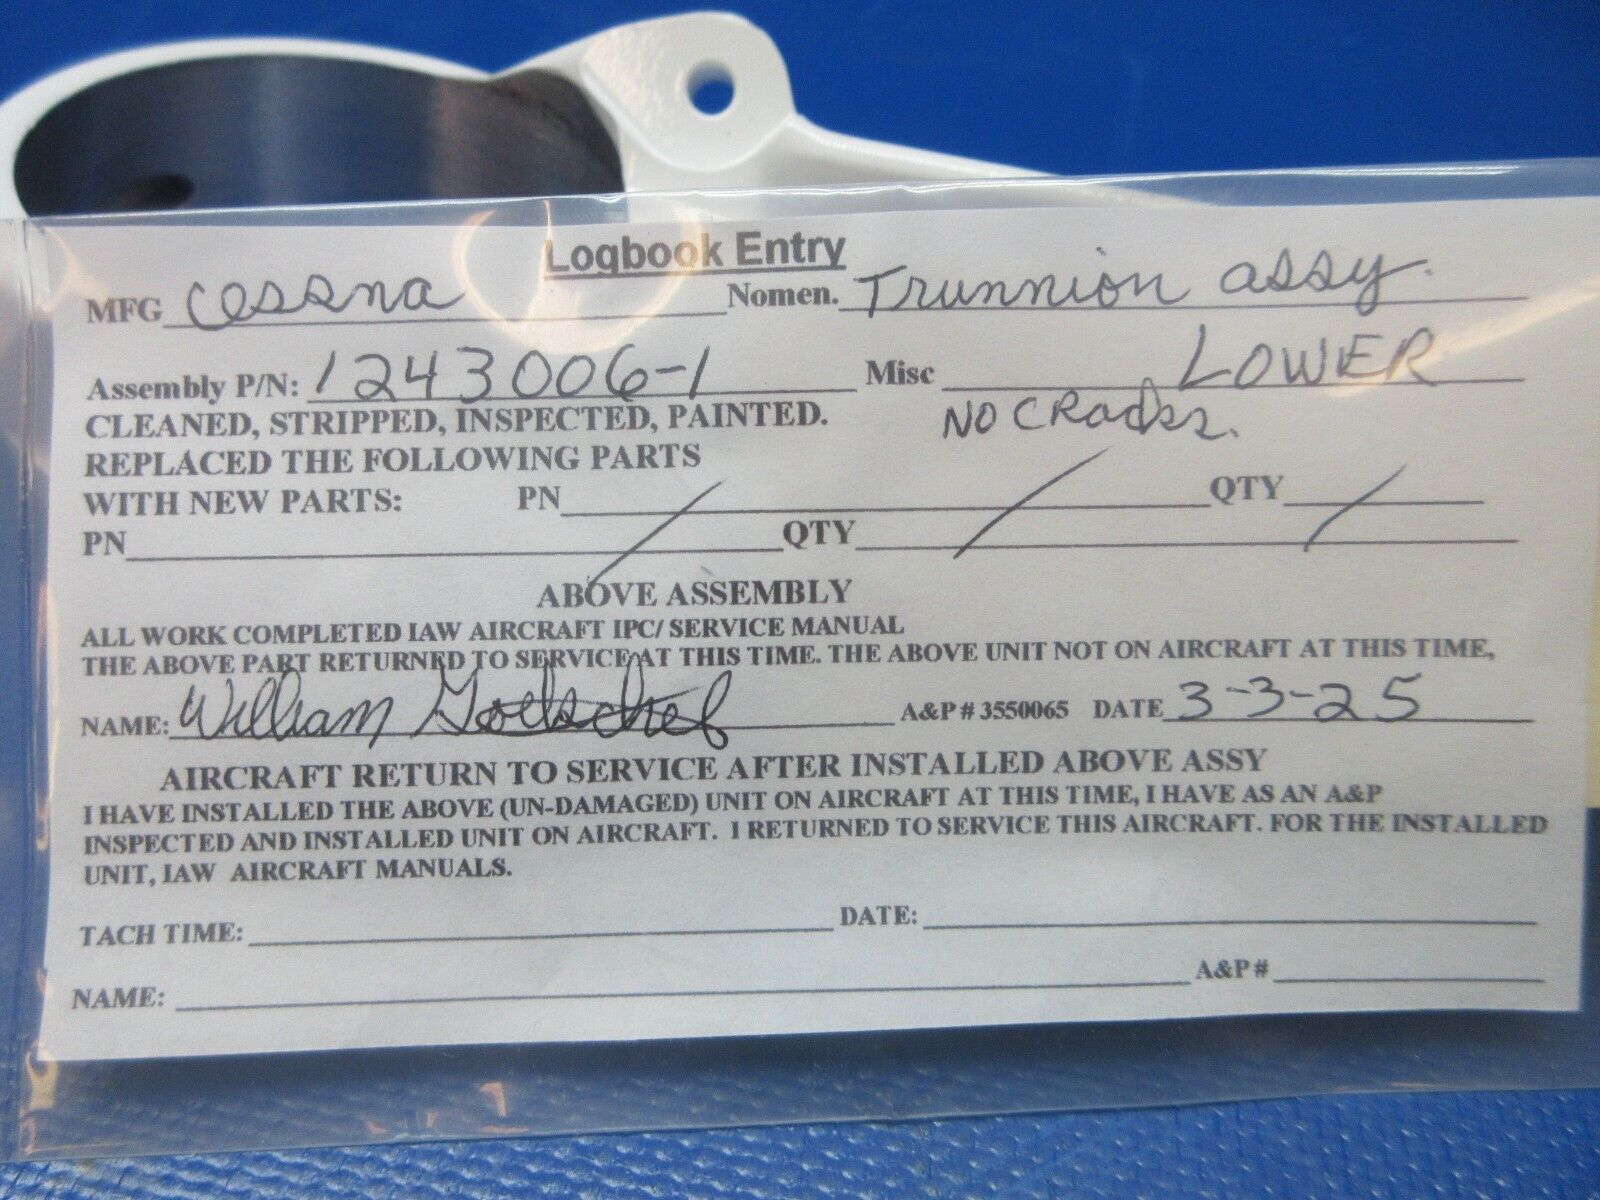 Logbook Entry
MFG Cessna Nomen. Trunnion assy.
Assembly P/N: 1243006-1 Misc LOWER
CLEANED, STRIPPED, INSPECTED, PAINTED. NO CRacks.
REPLACED THE FOLLOWING PARTS
WITH NEW PARTS: PN QTY
PN QTY
ABOVE ASSEMBLY
ALL WORK COMPLETED IAW AIRCRAFT IPC/ SERVICE MANUAL
THE ABOVE PART RETURNED TO SERVICE AT THIS TIME. THE ABOVE UNIT NOT ON AIRCRAFT AT THIS TIME,
NAME: William A&P # 3550065 DATE 3-3-25
AIRCRAFT RETURN TO SERVICE AFTER INSTALLED ABOVE ASSY
I HAVE INSTALLED THE ABOVE (UN-DAMAGED) UNIT ON AIRCRAFT AT THIS TIME, I HAVE AS AN A&P
INSPECTED AND INSTALLED UNIT ON AIRCRAFT. I RETURNED TO SERVICE THIS AIRCRAFT. FOR THE INSTALLED
UNIT, IAW AIRCRAFT MANUALS.
TACH TIME: DATE:
NAME: A&P #